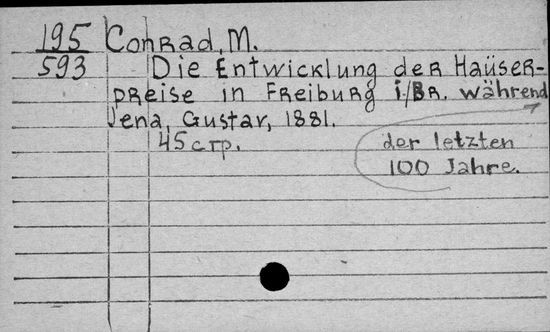 195 Conrad, M.
593 Die Entwicklung der Haüser-
preise in Freiburg i./Br. während
Jena, Gustav, 1881.
45 стр. der letzten
100 Jahre.